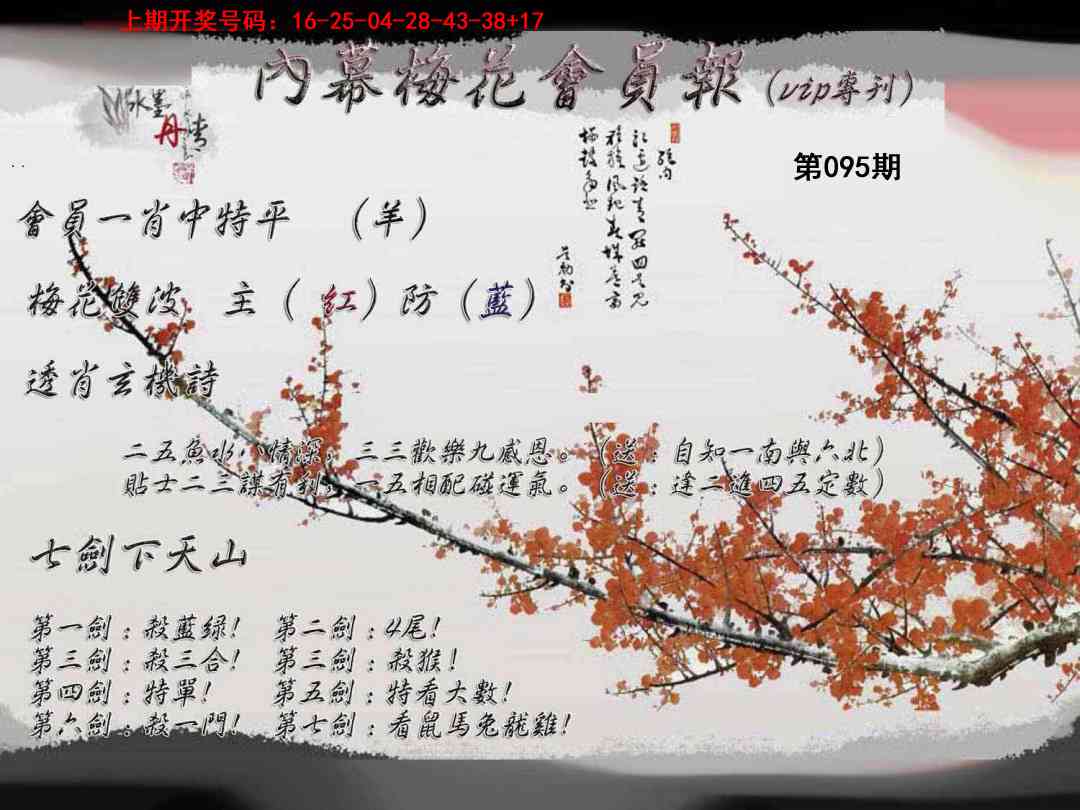 上期开奖号码：16-25-04-28-43-38+17
內幕梅花會員報（vip專刊）
水墨
丹青
第095期
會員一肖中特平　（羊）
梅花雙波　主（紅）防（藍）
透肖玄機詩
二五魚水八情深，三三歡樂九感恩。（送：自知一南與六北）
貼士二三謀有利，一五相配碰運氣。（送：逢二進四五定數）
七劍下天山
第一劍：殺藍綠！　第二劍：4尾！
第三劍：殺三合！　第三劍：殺猴！
第四劍：特單！　第五劍：特看大數！
第六劍：殺一門！　第七劍：看鼠馬兔龍雞！